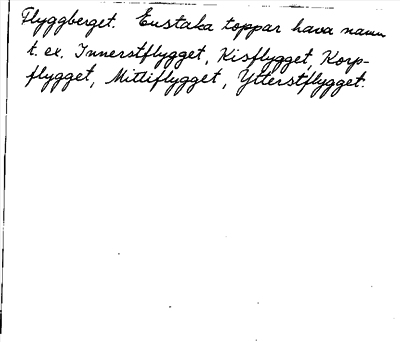 Flyggberget. Enstaka toppar hava namn
t. ex. Innerstflygget, Kisflygget, Korp-
flygget, Mittiflygget, Ytterstflygget.